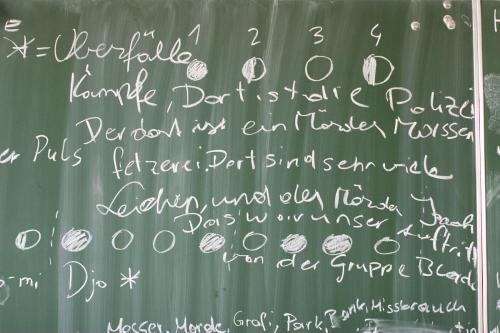 * = Überfälle 1 2 3 4
Kämpfe, Dort ist die Polizei
Der dort ist ein Mörder Messer
er Puls felzerei. Dort sind sehr viele
Leichen, und der Mörda
Das war unser Auftritt
von der Gruppe
o-mi Djo *
Messer, Morde, Graf, Park, Bank, Missbrauch